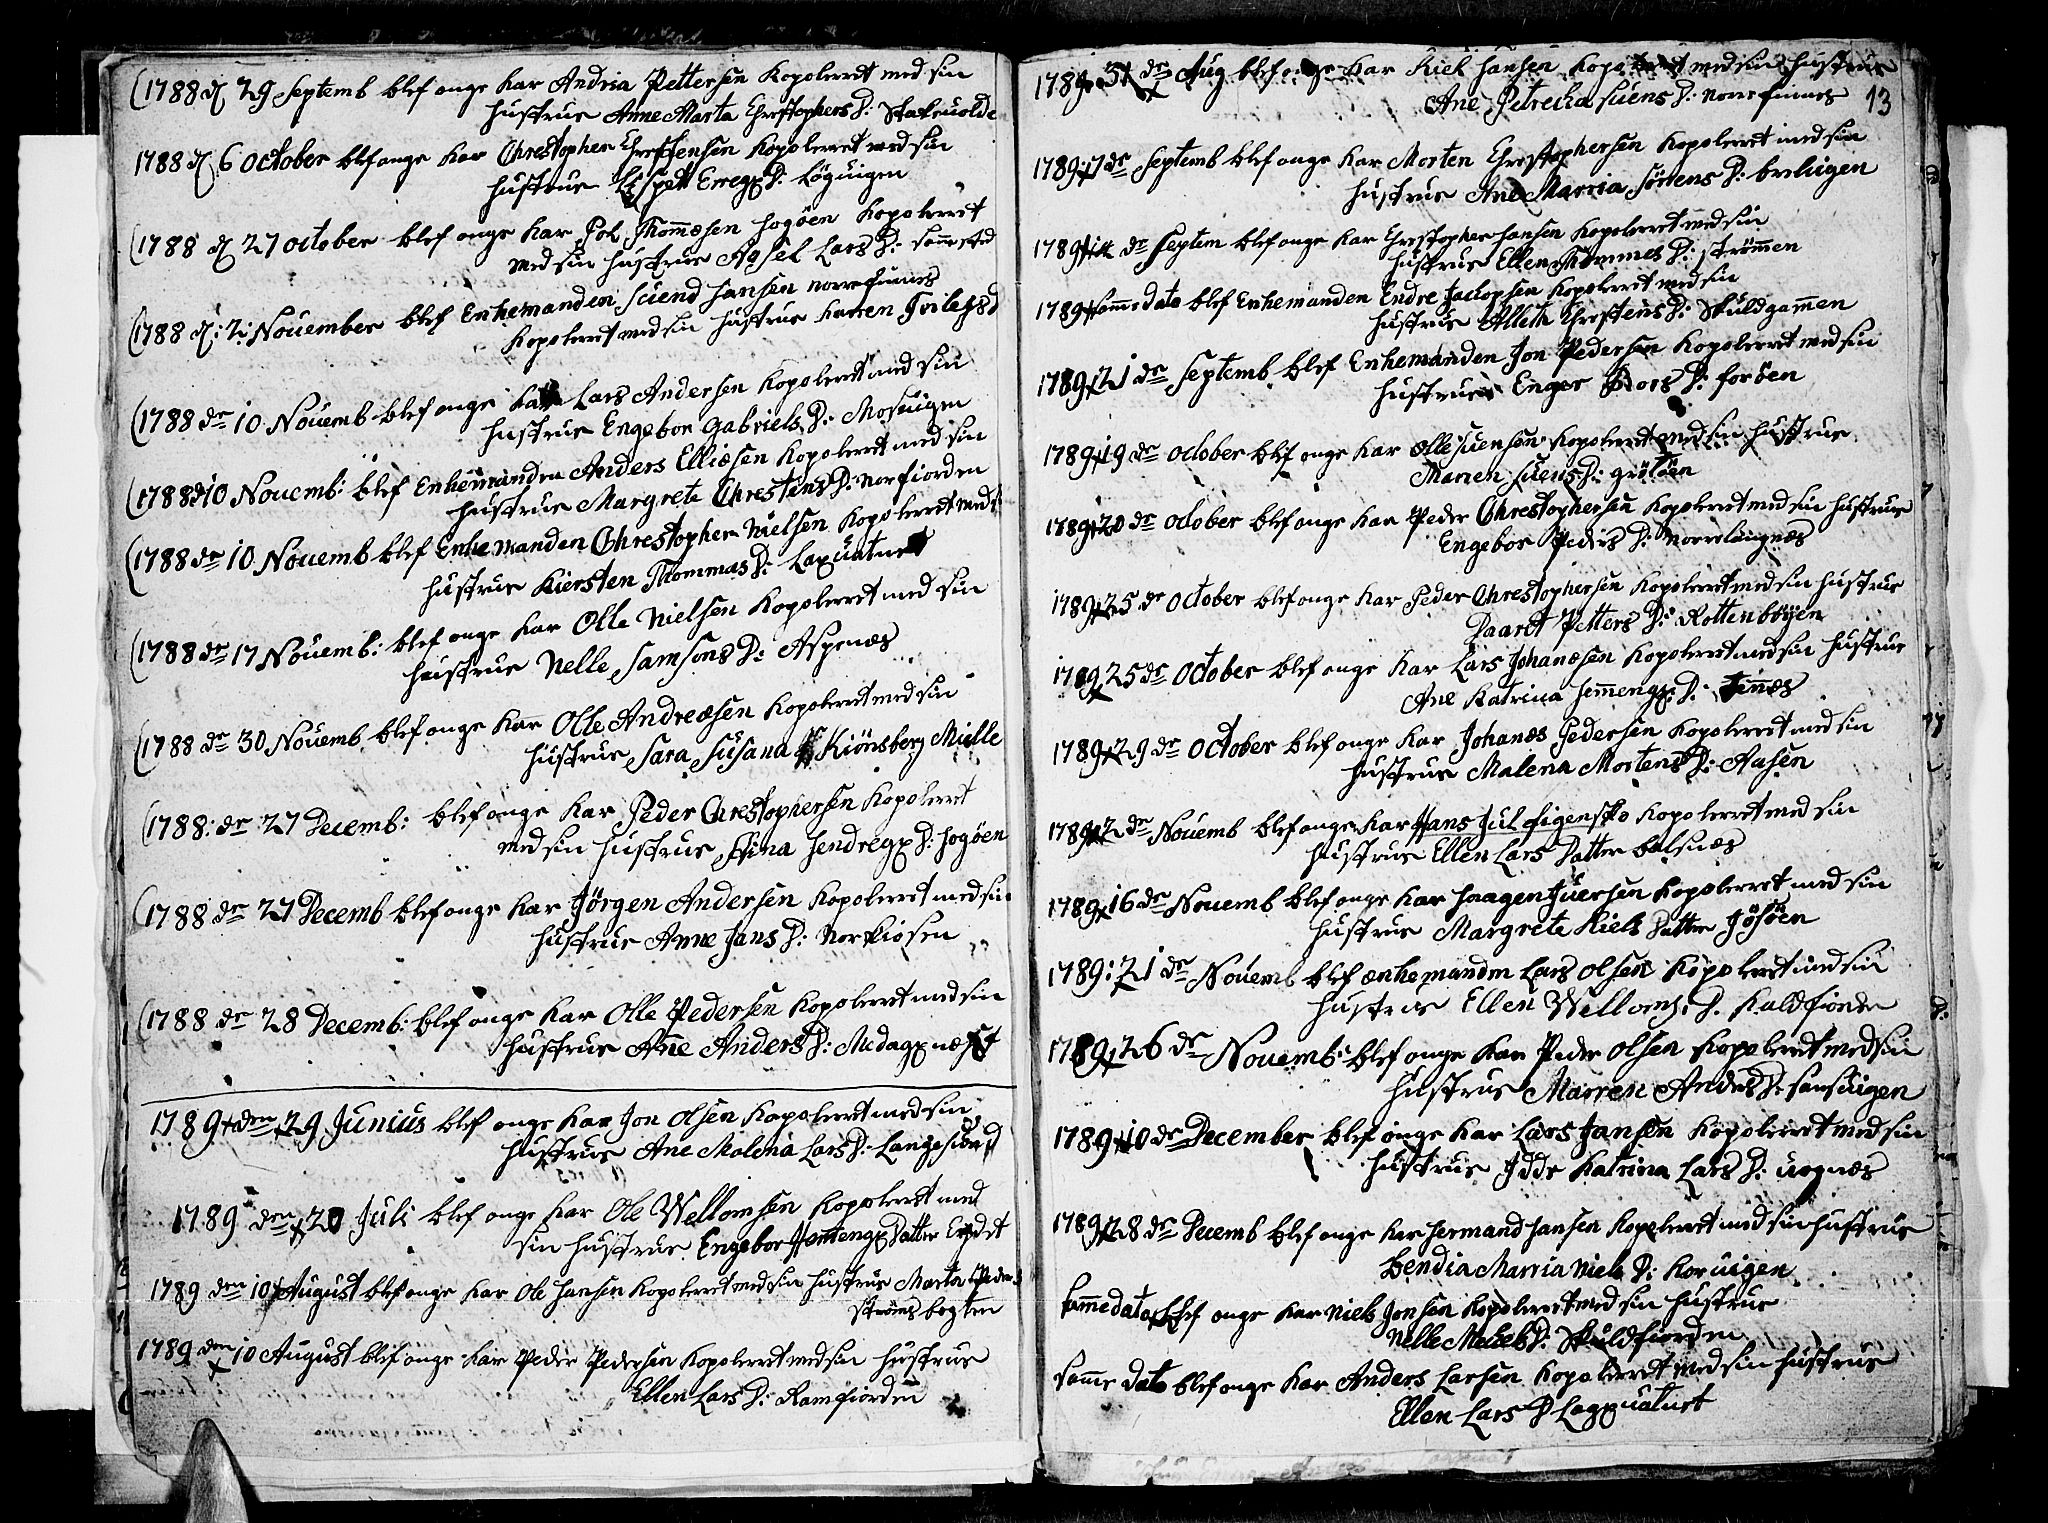 (1788 d 29 Septemb blef onge Kar Andria Pettersen Kopoleret med sin
hustrue Anne Marta Chrestophers D: Stakuolde
1788 d 6 October blef onge Kar Chrestopher Chrestensen Kopoleret med sin
hustrue Lispet Erregx D: Løguigen
(1788 d 27 October blef onge Kar Pol Thomæsen hogöen Kopoleret
med sin hustrue Aosel Lars D: sammested
(1788 d: 2: Nouember blef Enkemanden Suend hansen norrefinnes
Kopoleret med sin hustrue Karen
(1788 de 10 Nouemb blef onge Kar Lars Andersen Kopoleret med sin
hustrue Engebor Gabriels D: Mosuigen
(1788 d 10 Nouemb: blef Enkemanden Anders Elliesen Kopoleret med sin
hustrue Margrete Chrestens D: norfiorden
(1788 de 10 Nouemb blef Enkemanden Chrestopher Nielsen Kopoleret med
hustrue Kiersten Thommas D: Laxuatnet
(1788 de 17 Nouemb: blef onge Kar Olle Nielsen Kopoleret med sin
hustrue Nelle Samsons D: Aspenæs
(1788 de 30 Nouemb blef onge Kar Olle Andreæsen Kopoleret med sin
hustrue Sara Susana Kiörsberg Mielle
(1788: de 27 Decemb: blef onge Kar Peder Chrestophersen Kopoleret
med sin hustrue Sina hendregx D: hogöen
(1788 de 27 Decemb blef onge Kar Jörgen Andersen Kopoleret med sin
hustrue Anne Jans D: Norkiosen
(1788 de 28 Decemb: blef onge Kar Olle Pedersen Kopoleret med sin
hustrue Anne Anders D:
1789 + den 29 Junius blef onge Kar Jon Olsen Kopoleret med sin
hustrue Ane Malena Lars D: Langesund
1789 den + 20 Juli blef onge Kar Ole Wellomsen Kopoleret med
sin hustrue Engebor Datter
1789 den 10 + August blef onge Kar Ole hansen Kopoleret med sin hustrue Marta Peders
Ströms bogten
1789 den 10 August blef onge Kar Peder Pedersen Kopoleret med sin hustrue
Ellen Lars D: Ramfiorden
1789 31 de Aug blef onge Kar Kiel hansen Kopoleret med sin hustrue
Ane Petrecka Suens D: norrefinnes 13
1789 + 7 de Septemb blef onge Kar Morten Chrestophersen Kopoleret med sin
hustrue Ane Marria Sörens D: breluigen
1789 + 14 de Septem blef onge Kar Chrestopher hansen Kopoleret med sin
hustrue Ellen Tommes D: strömmen
1789 + samme dato blef Enkemanden Endre Jackopsen Kopoleret med sin
hustrue Alleth Chrestens D: Skuldgammen
1789 + 21 de Septemb blef Enkemanden Jon Pedersen Kopoleret med sin
hustrue Enger D: foröen
1789 + 19 de October blef onge Kar Olle Suensen Kopoleret med sin hustrue
Maren Suens D: grötöen
1789 + 20 de October blef onge Kar Peder Chrestophersen Kopoleret med sin hustrue
Engebor Peders D: norrelangnæs
1789 + 25 de October blef onge Kar Peder Chrestophersen Kopoleret med sin hustrue
Daaret Petters D: Rottenböyen
1789 + 25 de October blef onge Kar Lars Johanæsen Kopoleret med sin hustrue
Ane Katrina hemmengx D: Tennæs
1789 + 29 de October blef onge Kar Johanæs Pedersen Kopoleret med sin
hustrue Malena Mortens D: Aasen
1789 + 2 de Nouemb blef onge Kar Hans Jul figenskο Kopoleret med sin
hustrue Ellen Lars Datter balsnæs
1789 + 16 de Nouemb blef onge Kar haagen Juersen Kopoleret med sin
hustrue Margrete Kiels Datter Jösöen
1789: 21 de Nouemb blef ænkemanden Lars Olsen Kopoleret med sin
hustrue Ellen Wellomx. D. Kaldfiorden
1789 + 26 de Nouemb: blef onge Kar Peder Olsen Kopoleret med sin
hustrue Marren Anders D: sansuigen
1789 + 10 de December blef onge Kar Lars Jansen Kopoleret med sin
hustrue Idde Katrina Lars D: uognæs
1789 + 28 de Decemb blef onge Kar hermand hansen Kopoleret med sin hustrue
Bendia Marria Niels D: Koruigen
samme dato blef onge Kar Niels Jonsen Kopoleret med sin hustrue
Nelle Mickels D: Skuldfiorden
samme dato blef onge Kar Anders Larsen Kopoleret med sin hustrue
Ellen Lars D Lagxuatnet